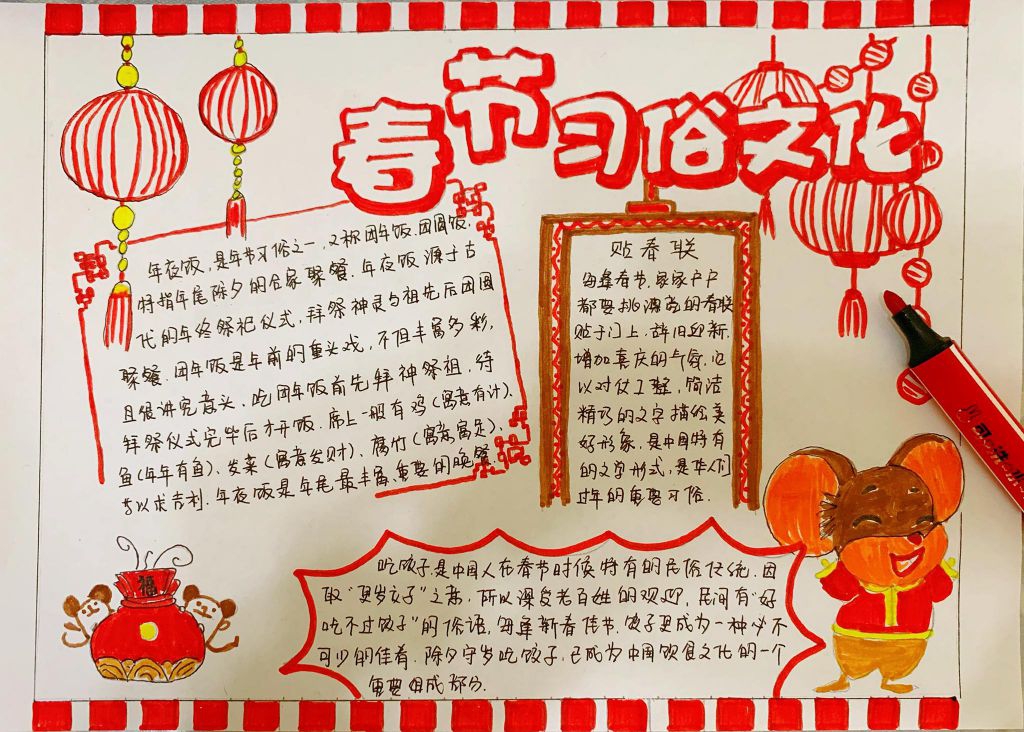 春节习俗文化
年夜饭，是年节习俗之一，又称团年饭、团圆饭，
特指年尾除夕的合家聚餐．年夜饭源于古
代的年终祭祀仪式，拜祭神灵与祖先后团圆
聚餐．团年饭是年前的重头戏，不但丰富多彩，
且很讲究意头．吃团年饭前先拜神祭祖，待
拜祭仪式完毕后才开饭．席上一般有鸡（寓意有计）、
鱼（年年有鱼）、发菜（寓意发财）、腐竹（寓意富足）、
等以求吉利．年夜饭是年尾最丰富、重要的晚餐
贴春联
每逢春节，家家户户
都要挑漂亮的春联
贴于门上，辞旧迎新，
增加喜庆的气氛．它
以对仗工整，简洁
精巧的文字描绘美
好形象，是中国特有
的文学形式，是华人们
过年的重要习俗．
福
吃饺子是中国人在春节时候特有的民俗传统．因
取"更岁交子"之意，所以深受老百姓的欢迎，民间有"好
吃不过饺子"的俗语，每逢新春佳节，饺子更成为一种必不
可少的佳肴．除夕守岁吃饺子，已成为中国饮食文化的一个
重要组成部分．